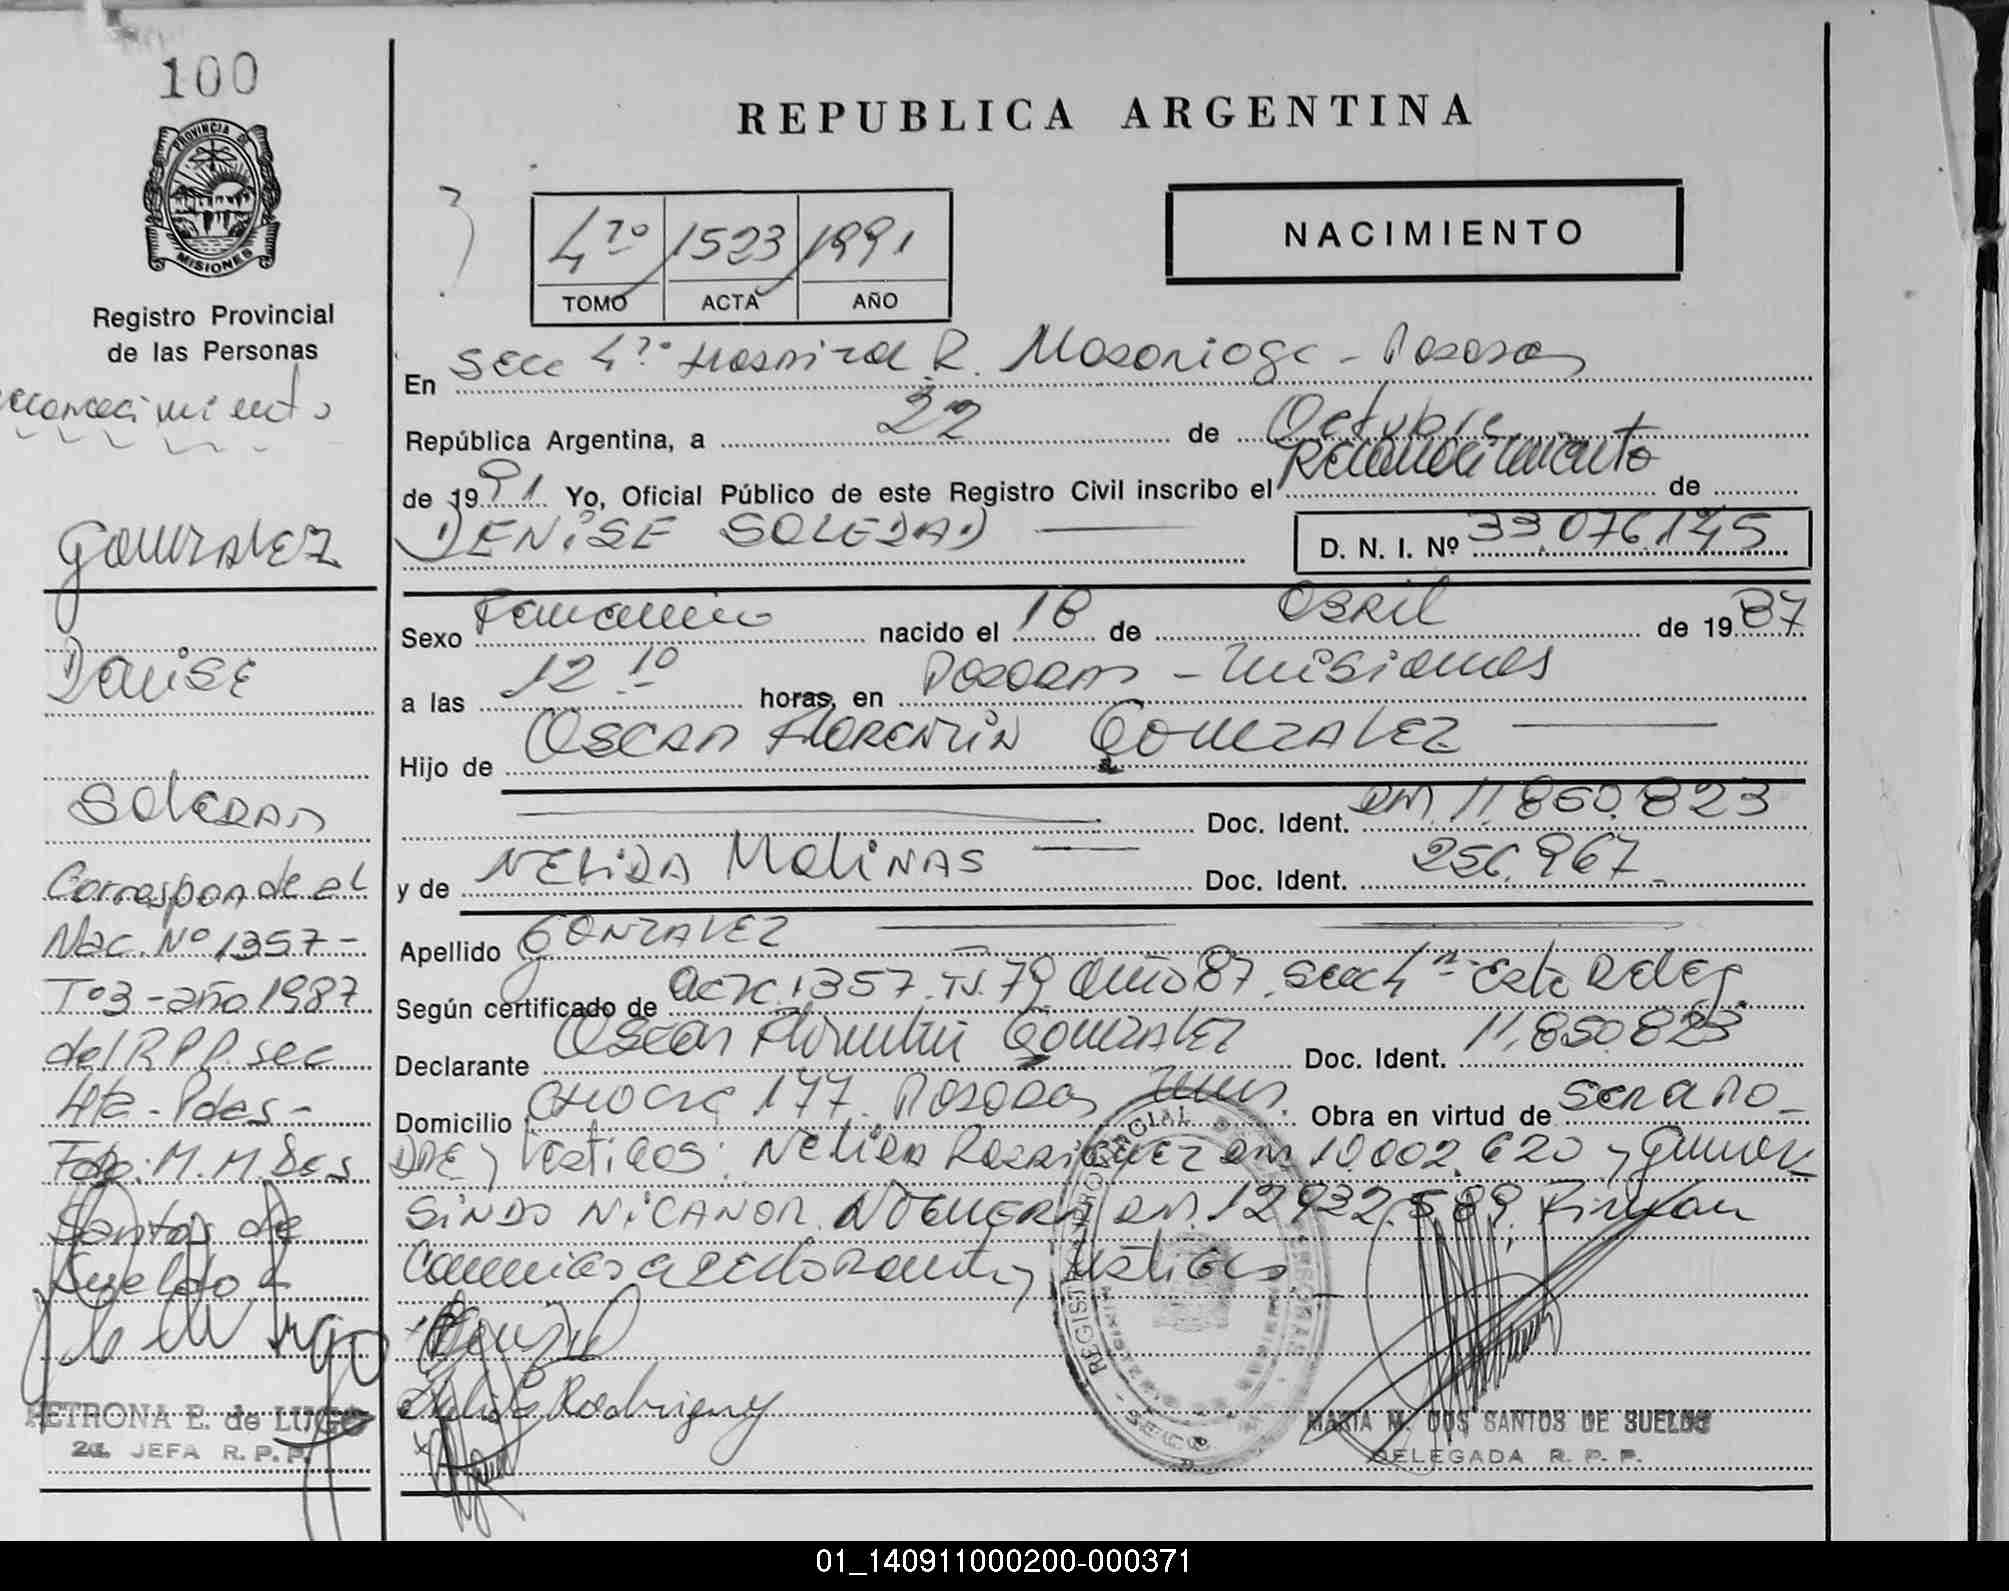 100
PROVINCIA DE
MISIONES
Registro Provincial
de las Personas
Reconocimiento
GONZALEZ
Denise
SOLEDAD
Corresponde al
Nac. Nº 1357-
Tº3-año 1987
del R.P.P. sec
4ta-Pdas-
Fdo: M. M. Dos
Santos de
Sueldo
PETRONA E. de LUGO
2da. JEFA R. P. P.
REPUBLICA ARGENTINA
4to 1523 1991
TOMO ACTA AÑO
NACIMIENTO
En Secc 4ta Hospital R. Madariaga - Posadas
República Argentina, a 22 de Octubre
de 1991 Yo, Oficial Público de este Registro Civil inscribo el Reconocimiento de
DENISE SOLEDAD D. N. I. Nº 33.076.145
Sexo Femenino nacido el 18 de Abril de 1987
a las 12 10 horas, en Posadas - Misiones
Hijo de OSCAR FLORENTIN GONZALEZ
Doc. Ident. DNI 11.850.823
y de NELIDA MOLINAS Doc. Ident. 256.967
Apellido GONZALEZ
Según certificado de Acta 1357 Año 87 Secc 4ta Esta Deleg.
Declarante Oscar Florentin GONZALEZ Doc. Ident. 11.850.823
Domicilio 177. Posadas Obra en virtud de ser el
padre y testigos: NELIDA RODRIGUEZ DNI 10.002.620 y
SINDO NICANOR NOGUERA DNI 12.932.589. Firman
Conmigo declarante y testigos
Nelida Rodriguez
REGISTRO PROVINCIAL DE LAS PERSONAS
MARIA M. DOS SANTOS DE SUELDO
DELEGADA R. P. P.
01_140911000200-000371